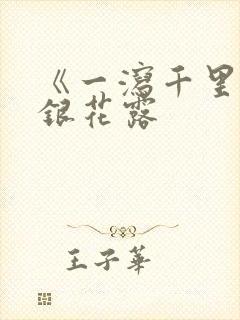 《一瀉千里
銀花露
王子華